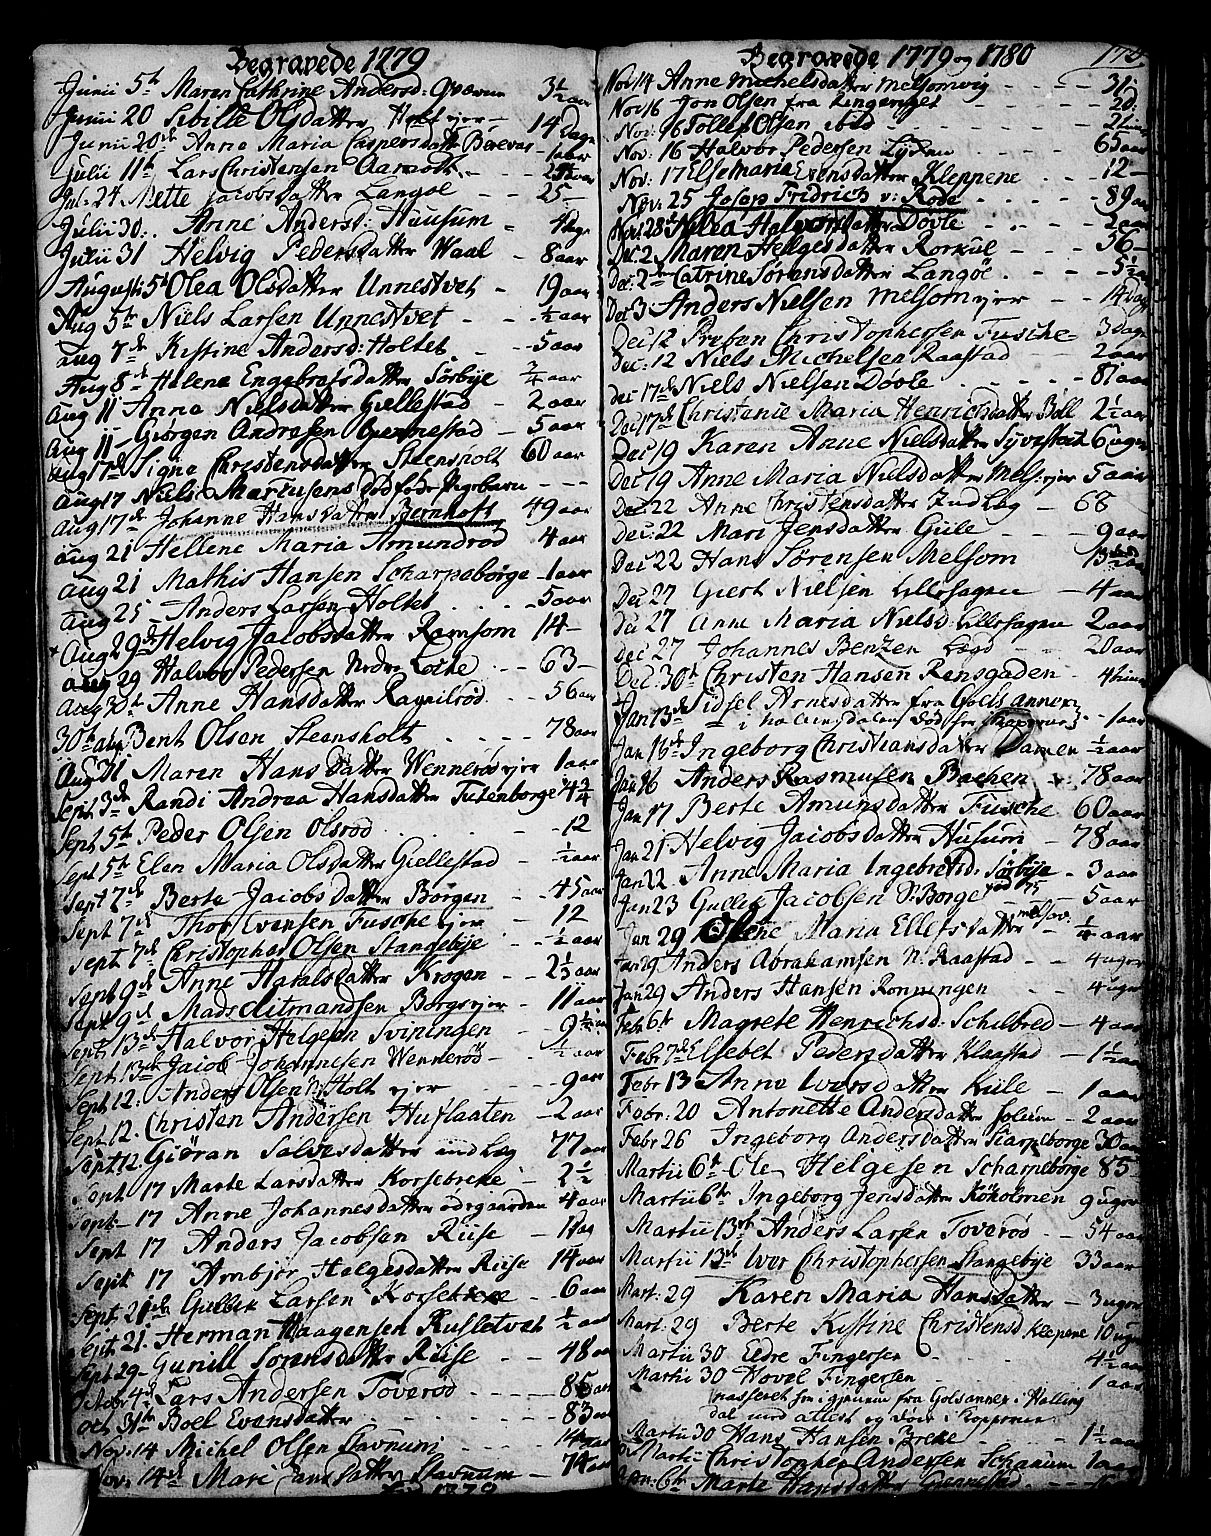 Begravede 1779
Junii 5t Maren Cathrine Andersd: Qværnn 3½ aar
Junii 20 Sibille Olsdatter Holt ejer — 14 dage
Junii 20de Anna Maria Caspersdatt — 1 aar
Julii 11t Lars Christensen Aarroth
Jul: 24 Mette Jacobsdatter Langøe — 25 —
Julii 30: Anne Andersd: Huusum = 4 dage
Julii 31 Helvig Pedersdatter Waal — 8 aar
Augusti 5t Olea Olsdatter Unnestvet — 19 aar
Aug 5te Niels Larsen Unnestvet — ½ aar
aug 7de Kistine Andersd: Holtet — 5 aar
Aug 8de Helena Engebretsdatter Sørbÿe ¾ aar
Aug 11 Anna Nielsdatter Giellestad — 2 aar
Aug 11 — Giørgen Andresen Giennestad — 5 aar
aug 17de Signe Christensdatter Steensholt 60 aar
Aug 17 Niels Martinsens dødføde Pigebarn - - -
aug 17de Johanne Hansdatter Bernhoft 49 aar
aug 21 Hellene Maria Amundrød 4 aar
Aug 21 Mathis Hansen Scharpeborge — 1 aar
aug 25 — Anders Larsen Holtet — 5 aar
Aug 29de Helvig Jacobsdatter Ramsom 14 —
aug 29 Halvor Pedersen Nedre Løcke — 63 —
Aug 30t Anne Hansdatter Ragnilrød — 56 aar
30te aug Bent Olsen Steensholt — 78 aar
Aug 31 Maren Hansdatter Wennerød ejer 1 aar
Sept 3de Randi Andrea Hansdatter Futenborge 4¾
Sept 5te Peder Olsen Olsrød — 12
Sept 5te Elen Maria Olsdatter Giellestad — ½ aar
Sept 7de Berte Jacobsdatter Børgen — 45 aar
Sept 7de Thor Evensen Fusche ejer — 12
Sept 7de Christopher Olsen Stangebÿe — ½ aar
Sept 9de Anne Haralsdatter Krogen — 2½ aar
Sept 9de Mads Ditmandsen Borgejer — 11 aar
Sept 13de Halvor Helgesen Sviningen — 9
Sept 13de Jacob Johannesen Wennerød — ½ aar
Sept 12: Anders Olsen N: Holt ejer — 9 aar
Sept 12. Christen Andersen Huflaaten — 2 aar
Sept 12 Giøran Salvesdatter indlæg 77 aar
Sept 17 Marte Larsdatter Korsebreke — 2½
Sept — 17 Anne Johannesdatter ødegaarden 4 aar
Sept 17 Anders Jacobsen Riise —
Sept 17 Ambjør Helgesdatter Riise 14 aar
Sept 21de Gulleck Larsen Korsebreke — 6 aar
Sept 21. Herman Haagensen Rusletvet ½ aar
Sept 29 — Gunill Sorensdatter Riise — 48 aar
October 4de Lars Andersen Toverød — 85 aar
Oct 31te Boel Evansdatter — 83 aar
Nov: 14 Michel Olsen Stavnum
Nov: 14de Mari Jansdatter Stavnum — 74 aar
Begravede 1779 og 1780
Nov 14 Anne Michelsdatter Melsomvig — 31 -
Nov 16 Jon Olsen fra Ringeriget — 20:
Nov: 16 Tollef Olsen ibid
Nov: 16 Halvor Pedersen — 65 aar
Nov: 17 Else Maria Evensdatter Kleppene — 12 —
Nov: 25 Josop Fridrich v: Rode — 89 aar
Nov: 28 Helea Halvorsdatter Døvle — 2 aar
Dec: 2 Maren Helgesdatter Rorkul — 56 —
Dec: 2de Catrine Sørensdatter Langøe — 5½ aar
Dec: 3: Anders Nielsen Melsom ejer — 14 dage
Dec: 12 Preben Christophersen Fusche — 3 dage
Dec: 12 Niels Michelsen Raastad — 2 aar
Dec 17de Niels Nielsen Døvle — 81 aar
Dec 17de Christenie Maria Henrichsdatter Boll 2½ aar
Dec 19 Karen Anne Nielsdatter 6 uger
Dec 19 Anne Maria Nielsdatter Mels: ejer 5 aar
Dec 22 Anne Christensdatter Indlæg — 68
Dec: 22 Mari Jensdatter Gule — 9 aar
Dec 22 Hans Sørensen Melsom
Dec 27 Giert Nielsen Lillefagen — 4 aar
Dec 27 Anne Maria Nielsd: Lillefagen 2 aar
Dec 27 Johannes Benzen Lægd — 20 aar
Dec: 30t Christen Hansen Rensgaden
Jan 13de Sidsel Arnesdatter fra Golls annex — 1 aar
i Hallingdalen død
Jan 15de Ingeborg Christiansdatter Damen ½ aar
Jan 16 Anders Rasmusen Backen — 78 aar
Jan 17 Berte Amunsdatter Fusche 60 aar
Jan 21 Helvig Jacobsdatter Husum — 78 aar
Jan 22 Anne Maria Ingebretsd: Sørbije — 3 aar
Jan 23 Gulleck Jacobsen S: Borge — 5 aar
Jan 29 Olene Maria Ellefsdatter Melsov: — ¼ aar
Jan 29 Anders Abrahamsen N: Raastad — 4 uger
Jan 29 Anders Hansen Ronningen — 4 uger
Febr 6t Magrete Henrichsd: Schilbred — 4 aar
Febr 7de Elsebet Pedersdatter Klaastad — 1½ aar
Febr 13 Anne Iversdatter Kiile — 1 aar
Febr: 20 Antonette Andersdatter Solum — 2 aar
Febr 26 Ingeborg Andersdatter Scarpeborge 30 aar
Martii 6t Ole Helgesen Scharpeborge 85
Martii 6te Ingeborg Jensdatter Køholmen 9 uger
Martii 13de Anders Larsen Toverød — 54 aar
Martii 13de Iver Christophersen Stangebije 33 aar
Mart: 29 Karen Maria Hansdatter — 3 uger
Mart: 29 Berte Kistine Christensd Klepene 10 uger
Martii 30 Eldre Fingersen — 4½ aar
Martii 30 Hovel Fingersen — 1 aar
passeret her igjenem fra Golsannex i Halling
dal med attest og døde i Kopperne
Martii 30 Hans Hansen Breke — 1½ aar
Martii — Christopher Andersen Schanum 1 aar
6te Marte Hansdatter Giennestad